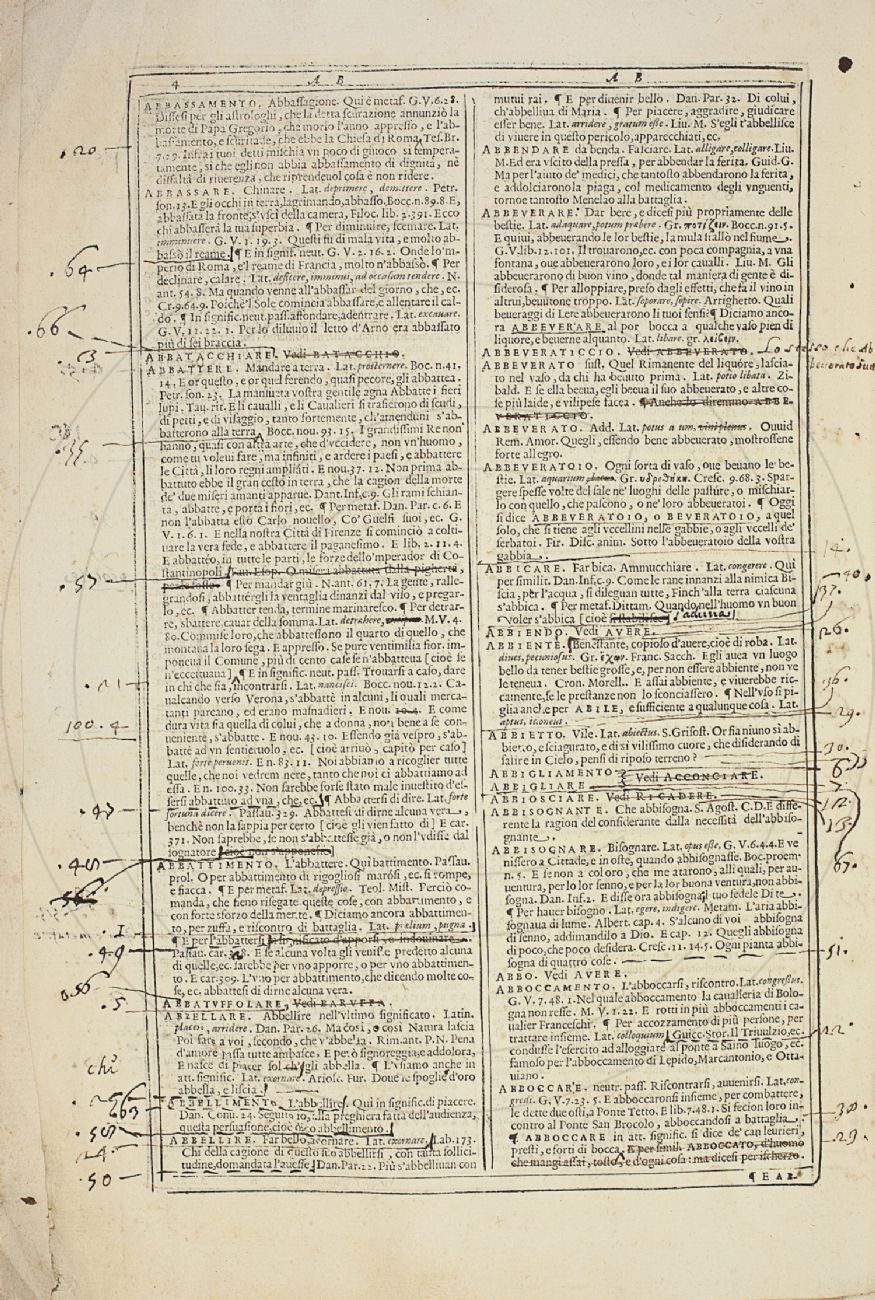 4
A B
A B
ABBASSAMENTO. Abbassagione. Qui è metaf. G.V.6.28.
Dissesi per gli astrologhi, che la detta scurazione annunziò la
morte di Papa Gregorio, che morìo l'anno appresso, e l'ab-
bassamento, e scuritade, che ebbe la Chiesa di Roma, Tes. Br.
7.29. Infra i tuoi detti mischia vn poco di giuoco sì tempera-
tamente, sì che egli non abbia abbassamento di dignità, nè
difalta di riuerenza, che riprendeuol cosa è non ridere.
ABBASSARE. Chinare. Lat. deprimere, demittere. Petr.
son.13. E gli occhi in terra, lagrimando, abbasso. Bocc.n.89.8. E,
abbassata la fronte, s'vscì della camera, Filoc. lib. 2.391. Ecco
chi abbasserà la tua superbia. ¶ Per diminuire, scemare. Lat.
imminuere. G. V. 1. 19. 3. Questi fu di mala vita, e molto ab-
bassò il reame. ¶ E in signif. neut. G. V. 2. 16. 2. Onde lo'm-
perio di Roma, e'l reame di Francia, molto n'abbassò. ¶ Per
declinare, calare. Lat. deficere, imminui, ad occasum tendere. N.
ant. 54. 8. Ma quando venne all'abbassar del giorno, che, ec.
Cr.9.64.9. Poichè'l Sole comincia abbassare, e allentare il cal-
do. ¶ In signific. neut. pass. affondare, adentrare. Lat. excauare.
G. V. 11. 22. 1. Per lo diluuio il letto d'Arno era abbassato
più di sei braccia.
ABBATACCHIARE. Vedi BATACCHIO.
ABBATTERE. Mandare a terra. Lat. prosternere. Boc. n.41.
14. E or questo, e or quel ferendo, quasi pecore, gli abbattea.
Petr. son. 23. La mansueta vostra gentile agna Abbatte i fieri
lupi. Tau. rit. E li caualli, e li Caualieri si trafierono di scudi,
di petti, e di visaggio, tanto fortemente, ch'amenduni s'ab-
batterono alla terra. Bocc. nou. 93. 15. I grandissimi Re non
hanno, quasi con altra arte, che d'vccidere, non vn'huomo,
come tu voleui fare, ma infiniti, e ardere i paesi, e abbattere
le Città, li loro regni ampliati. E nou.37. 12. Non prima ab-
battuto ebbe il gran cesto in terra, che la cagion della morte
de' due miseri amanti apparue. Dant.Inf.c.9. Gli rami schian-
ta, abbatte, e porta i fiori, ec. ¶ Per metaf. Dan. Par. c. 6. E
non l'abbatta esto Carlo nouello, Co' Guelfi suoi, ec. G.
V. 1. 6. 1. E nella nostra Città di Firenze si cominciò a colti-
uare la vera fede, e abbattere il paganesimo. E lib. 2. 11. 4.
E abbatteo, in tutte le parti, le forze dello'mperador di Co-
stantinopoli. Fau. Esop. O misera abbattuta dalla pigherta,
¶ Per mandar giù. N. ant. 61. 7. La gente, ralle-
grandosi, abbattérgli la ventaglia dinanzi dal viso, e pregar-
lo, ec. ¶ Abbatter tenda, termine marinaresco. ¶ Per detrar-
re, sbattere, cauar della somma. Lat. detrahere, M. V. 4.
80. Commise loro, che abbattessono il quarto di quello, che
montaua la loro sega. E appresso. Se pure ventimilia fior. im-
poneua il Comune, più di cento case se n'abbatteua [cioè se
n'eccettuaua]. ¶ E in signific. neut. pass. Trouarsi a caso, dare
in chi che sia, incontrarsi. Lat. nancisci. Bocc. nou. 12. 2. Ca-
ualcando verso Verona, s'abbattè in alcuni, li quali merca-
tanti pareano, ed erano masnadieri. E nou. 10.4. E come
dura vita sia quella di colui, che a donna, non bene a se con-
ueniente, s'abbatte. E nou. 43. 10. Essendo già vespro, s'ab-
battè ad vn sentieruolo, ec. [cioè arriuò, capitò per caso]
Lat. forte peruenit. En. 83. 11. Noi abbiamo a ricoglier tutte
quelle, che noi vedrem nere, tanto che noi ci abbattiamo ad
essa. E n. 100.33. Non sarebbe forse stato male inuestito d'es-
sersi abbattuto ad vna, che, ec. ¶ Abbattersi di dire. Lat. forte
fortuna dicere. Passau. 329. Abbattesi di dirne alcuna vera,
benchè non la sappia per certo [cioè gli vien fatto di] E car.
371. Non saprebbe, se non s'abbattesse già, o non l'vdisse dal
sognatore [cioè non s'apponesse]
ABBATTIMENTO. L'abbattere. Qui battimento. Passau.
prol. O per abbattimento di rigogliosi maròsi, ec. si rompe,
e fiacca. ¶ E per metaf. Lat. depressio. Teol. Mist. Perciò co-
manda, che sieno risegate queste cose, con abbattimento, e
con forte sforzo della mente. ¶ Diciamo ancora abbattimen-
to, per zuffa, e riscontro di battaglia. Lat. prœlium, pugna.
¶ E per l'abbattersi in significato d'apporsi, o indouinare.
Passau. car. 308. E se alcuna volta gli venisse predetto alcuna
di quelle, ec. sarebbe per vno apporre, o per vno abbattimen-
to. E car. 309. L'vno per abbattimento, che dicendo molte co-
se, ec. abbattesi di dirne alcuna vera.
ABBATVFFOLARE, Vedi BARVFFA.
ABBELLARE. Abbellire nell'vltimo significato. Latin.
placere, arridere. Dan. Par. 26. Ma così, o così Natura lascia
Poi fare a voi, secondo, che v'abbella. Rim. ant. P. N. Pena
d'amore passa tutte ambasce, E però signoreggia, e addolora,
E nasce di piacer sol, ch'gli abbella. ¶ L'vsiamo anche in
att. signific. Lat. exornare. Arios. Fur. Doue le spoglie d'oro
abbella, e liscia.
ABBELLIMENTO. L'abbellire. Qui in signific. di piacere.
Dan. Conu. 24. Seguito io, alla preghiera fatta dell'audienza,
questa persuasione, cioè dico abbellimento.
ABBELLIRE. Far bello, adornare. Lat. exornare. Lab. 173.
Chi della cagione di questo suo abbellirsi, con tanta solleci-
tudine, domandata l'auesse. Dan. Par. 22. Più s'abbelliuan con
mutui rai. ¶ E per diuenir bello. Dan. Par. 32. Di colui,
ch'abbelliua di Maria. ¶ Per piacere, aggradire, giudicare
esser bene. Lat. arridere, gratum esse. Liu. M. S'egli t'abbellisce
di viuere in questo pericolo, apparecchiati, ec.
ABBENDARE da benda. Fasciare. Lat. alligare, colligare. Liu.
M. Ed era vscito della pressa, per abbendar la ferita. Guid.G.
Ma per l'aiuto de' medici, che tantosto abbendarono la ferita,
e addolciarono la piaga, col medicamento degli vnguenti,
tornoe tantosto Menelao alla battaglia.
ABBEVERARE. Dar bere, e dicesi più propriamente delle
bestie. Lat. adaquare, potum præbere. Gr. ποτίζειν. Bocc.n.91.5.
E quiui, abbeuerando le lor bestie, la mula stallò nel fiume.
G. V.lib.12.101. Il trouarono, ec. con poca compagna, a vna
fontana, oue abbeuerauano loro, e i lor caualli. Liu. M. Gli
abbeuerarono di buon vino, donde tal maniera di gente è di-
siderosa. ¶ Per alloppiare, preso dagli effetti, che fa il vino in
altrui, beuutone troppo. Lat. soporare, sopire. Arrighetto. Quali
beueraggi di Lete abbeuerarono li tuoi sensi: ¶ Diciamo anco-
ra ABBEVERARE al por bocca a qualche vaso pien di
liquore, e beuerne alquanto. Lat. libare. gr. λείβειν.
ABBEVERATICCIO. Vedi ABBEVERATO. Lo stesso che Ab
beuerato Sust
ABBEVERATO sust. Quel Rimanente del liquòre, lascia-
to nel vaso, da chi ha beuuto prima. Lat. potio libata. Zi-
bald. E se ella beeua, egli beeua il suo abbeuerato, e altre co-
se più laide, e vilipese facea. ¶ Anche lo diremmo ABBE-
VERATICCIO.
ABBEVERATO. Add. Lat. potus a um, vini plenus. Ouuid
Rem. Amor. Quegli, essendo bene abbeuerato, mostrossene
forte allegro.
ABBEVERATOIO. Ogni sorta di vaso, oue beuano le be-
stie. Lat. aquarium Cresc. 9.68.3. Spar-
gere spesse volte del sale ne' luoghi delle pasture, o mischiar-
lo con quello, che pascono, o ne' loro abbeueratoi. ¶ Oggi
si dice ABBEVERATOIO, o BEVERATOIO, a quel
solo, che si tiene agli vccellini nelle gabbie, o agli vccelli de'
serbatoi. Fir. Disc. anim. Sotto l'abbeueratoio della vostra
gabbia.
ABBICARE. Far bica. Ammucchiare. Lat. congerere. Qui
per similit. Dan.Inf.c.9. Come le rane innanzi alla nimica Bi-
scia, per l'acqua, si dileguan tutte, Finch'alla terra ciascuna
s'abbica. ¶ Per metaf. Dittam. Quando nell'huomo vn buon
voler s'abbica [cioè s'aduna]
ABBIENDO. Vedi AVERE.
ABBIENTE. Benestante, copioso d'auere, cioè di roba. Lat.
diues, pecuniosus. Gr. ἔχων. Franc. Sacch. Egli auea vn luogo
bello da tener bestie grosse, e, per non essere abbiente, non ve
le teneua. Cron. Morell. E assai abbiente, e viuerebbe ric-
camente, se le prestanze non lo sconciassero. ¶ Nell'vso si pi-
glia anche per ABILE, e sufficiente a qualunque cosa. Lat.
aptus, idoneus.
ABBIETTO. Vile. Lat. abiectus. S. Grisost. Or sia niuno sì ab-
bietto, e sciagurato, e di sì vilissimo cuore, che disiderando di
salire in Cielo, pensi di riposo terreno?
ABBIGLIAMENTO
Vedi ACCONCIARE.
ABBIGLIARE
ABBIOSCIARE. Vedi RICADERE.
ABBISOGNANTE. Che abbisogna. S. Agost. C.D. E diffe-
rente la ragion del considerante dalla necessità dell'abbiso-
gnante.
ABBISOGNARE. Bisognare. Lat. opus esse. G. V. 6.4.4. E ve
nissero a Cittade, e in oste, quando abbisognasse. Boc. proem
n. 5. E se non a coloro, che me atarono, alli quali, per au-
uentura, per lo lor senno, e per la lor buona ventura, non abbi-
sogna. Dan. Inf. 2. E disse ora abbisogna il tuo fedele Di te.
¶ Per hauer bisogno. Lat. egere, indigere. Metam. L'aria abbi-
sognaua di lume. Albert. cap. 4. S'alcuno di voi abbisogna
di senno, addimandilo a Dio. E cap. 12. Quegli abbisogna
di poco, che poco desidera. Cresc. 11. 14. 5. Ogni pianta abbi-
sogna di quattro cose.
ABBO. Vedi AVERE.
ABBOCCAMENTO. L'abboccarsi, riscontro. Lat. congressus.
G. V. 7. 48. 1. Nel quale abboccamento la caualleria di Bolo-
gna non resse. M. V. 1. 22. E rotti in più abboccamenti i ca-
ualier Franceschi. ¶ Per accozzamento di più persone, per
trattare insieme. Lat. colloquium. Guicc. Stor. Il Triuulzio, ec.
condusse l'esercito ad alloggiare al ponte a Saino luogo, ec.
famoso per l'abboccamento di Lepido, Marcantonio, e Otta-
uiano.
ABBOCCARE. neutr. pass. Riscontrarsi, auuenirsi. Lat. con-
gredi. G.V.7.23. 5. E abboccaronsi insieme, per combattere,
le dette due osti, a Ponte Tetto. E lib.7.48.1. Si fecion loro in-
contro al Ponte San Brocolo, abboccandosi a battaglia.
¶ ABBOCCARE in att. signific. si dice de' can leurieri,
presti, e forti di bocca. E per simil. ABBOCCATO, d'huomo
che mangi assai, tosto, e d'ogni cosa: ma dicesi per ischerzo.
¶ E AB-
20
64
66
3
55
57
21
100. 4
47
1
49
5
chi
256
663
508
50
14
40
37
26
36
29
30
6
7
12
13
67
51
22
38
29